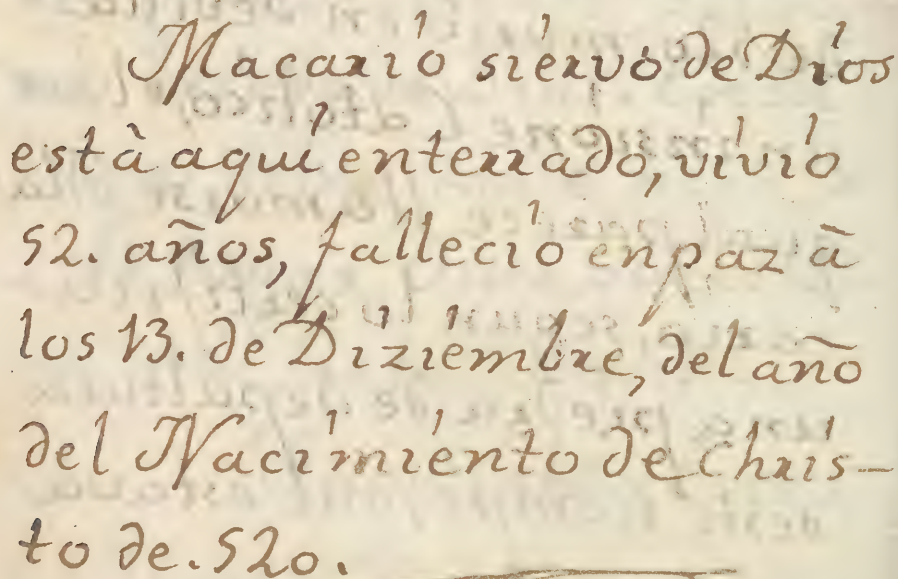 Macario siervo de Dios
està aqui enterrado, vivio
52. años, fallecio en paz à
los 13. de Diziembre, del año
del Nacimiento de Chris-
to de. 520.